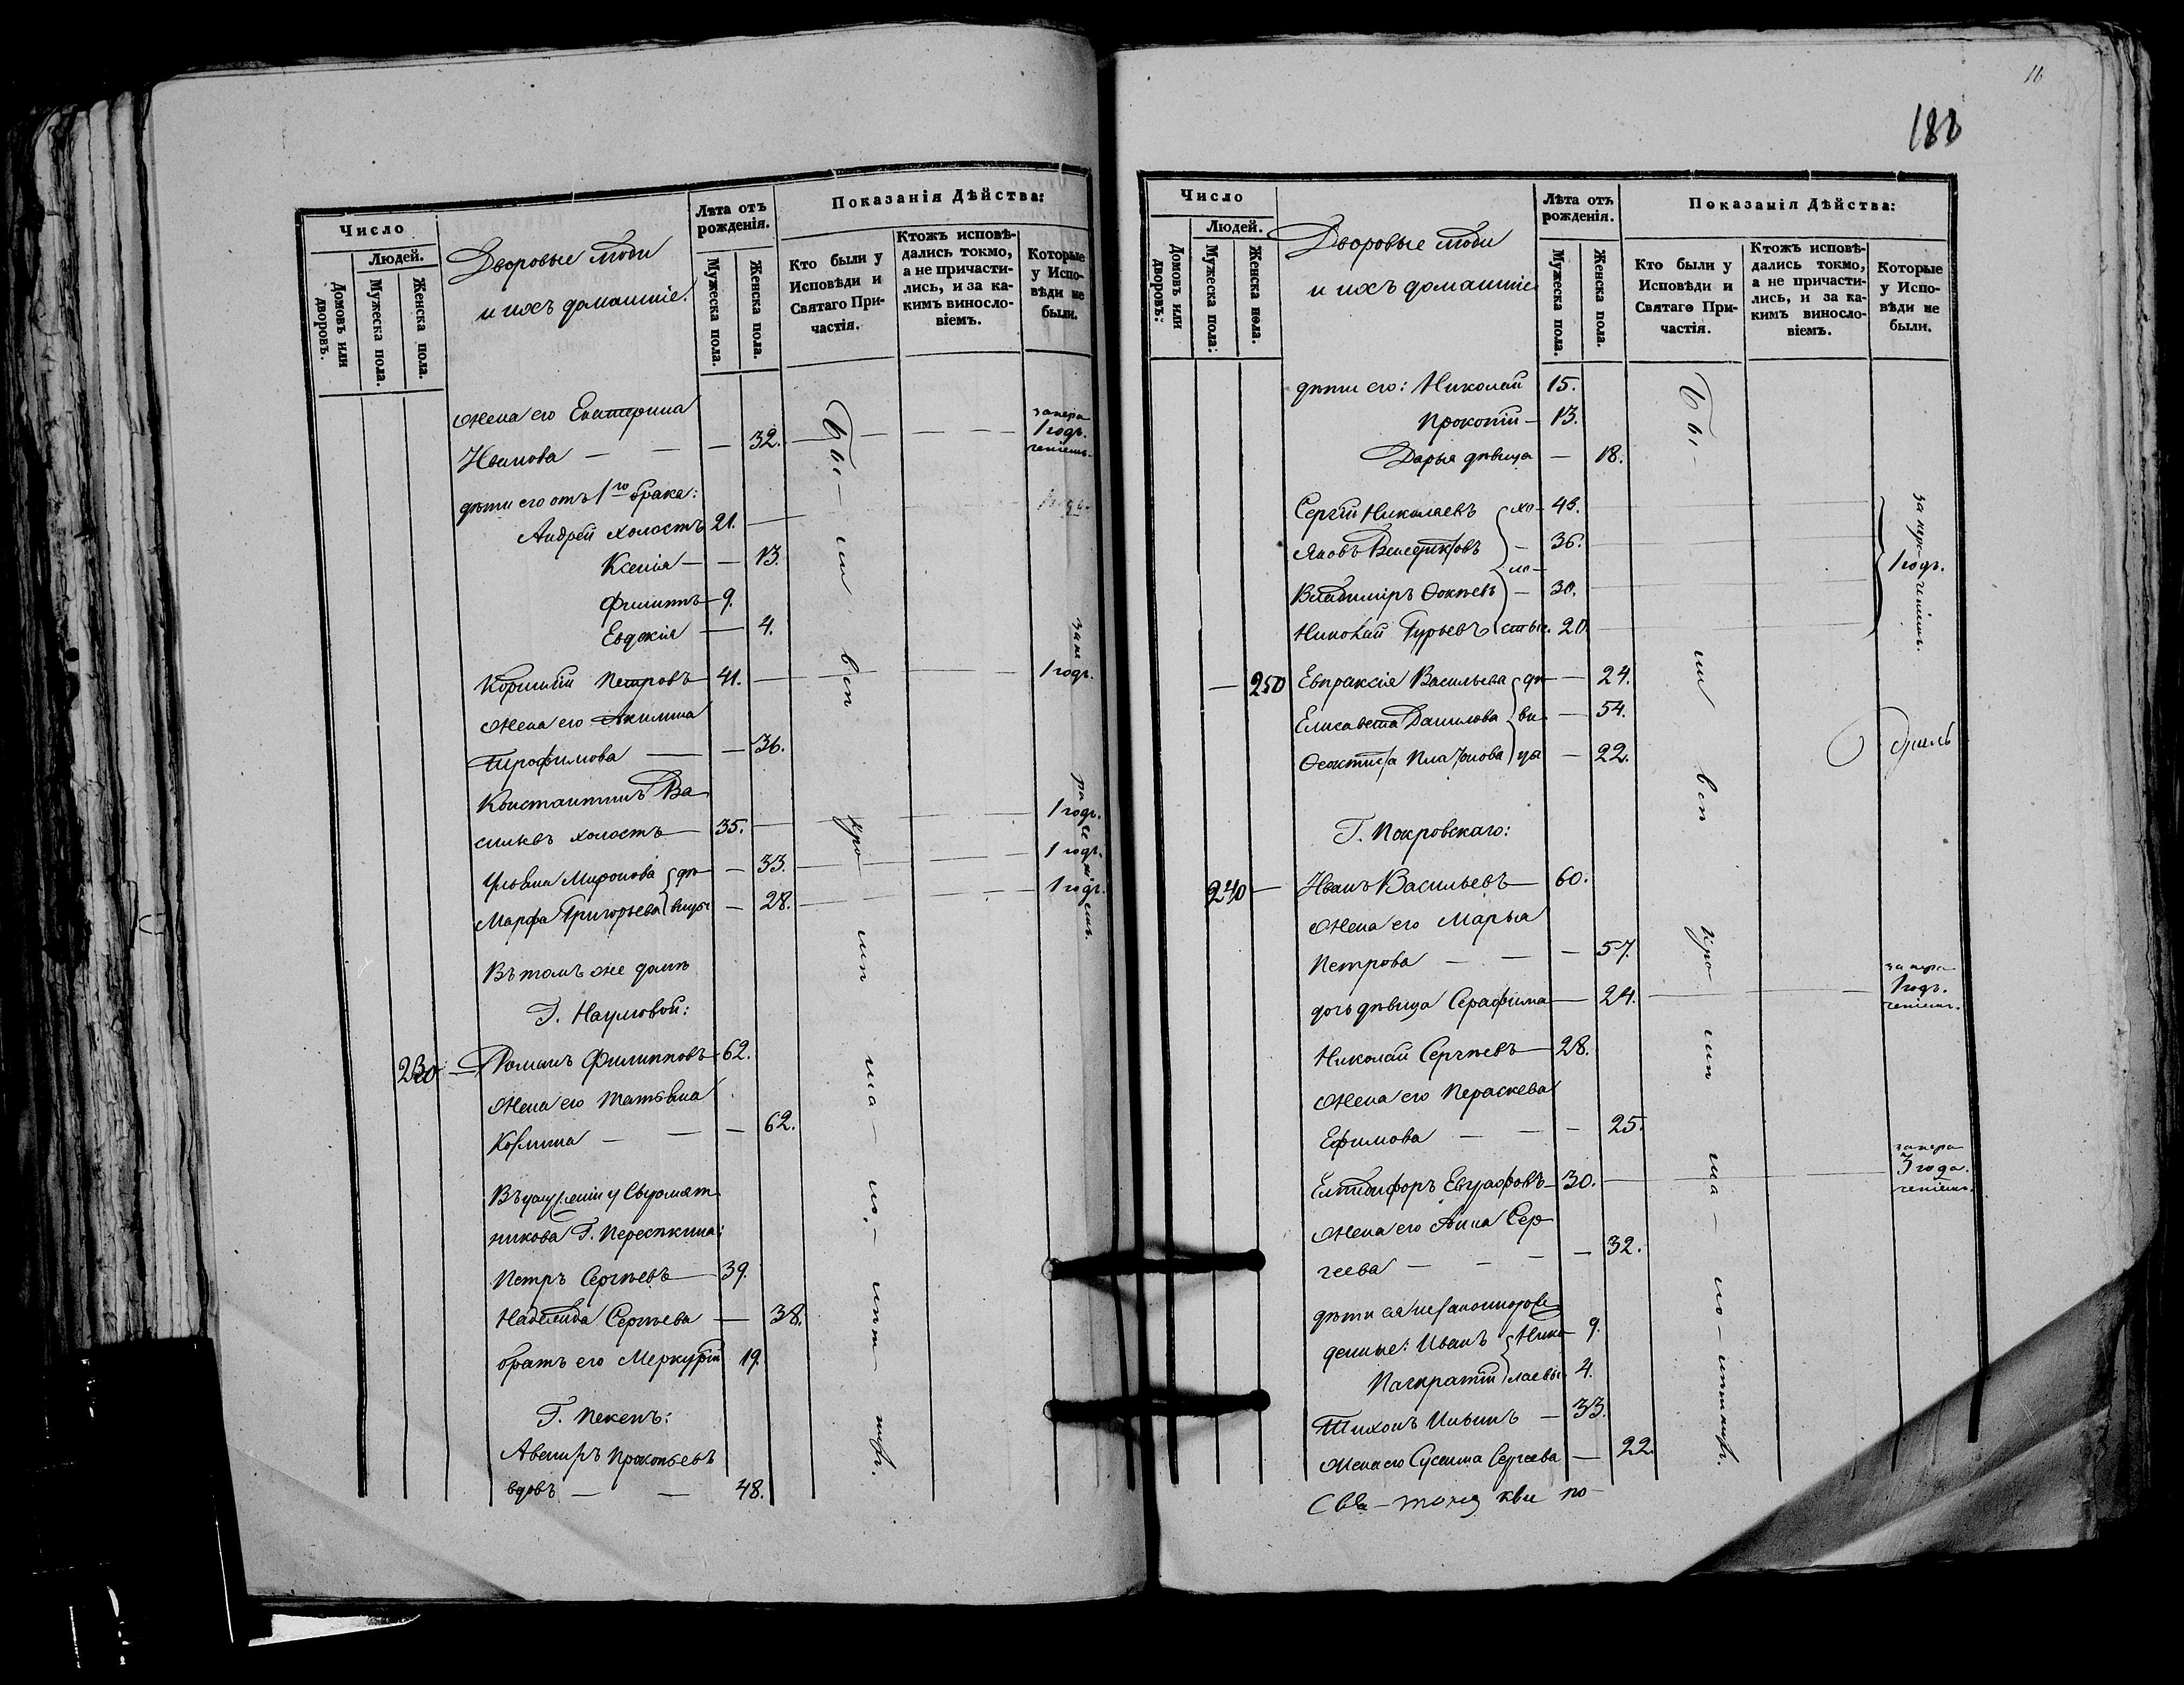 Число
Людей.
Домовъ или дворовъ.
Мужеска пола.
Женска пола.
Дворовые люди
и ихъ домашніе.
Лѣта отъ рожденія.
Мужеска пола.
Женска пола.
Показанія Дѣйства:
Кто были у Исповѣди и Святаго Причастія.
Ктожъ исповѣдались токмо, а не причастились, и за какимъ винословіемъ.
Которые у Исповѣди не были.
жена его Екатерина
Иванова — — — 32. 1 годъ.
дѣти его отъ 1го брака:
Андрей холостъ 21.
Ксенія — — 13.
Филиппъ — 9.
Евдокія — 4.
Петровъ — 41. — 1 годъ.
жена его Акилина
Трофимова — — 36.
Константинъ Ва
сильевъ холостъ — 35. — 1 годъ.
Ульяна Миронова дѣ — 33. — 1 годъ.
Марфа Григорьева вицы — 28. — 1 годъ.
Въ томъ же домѣ
Г. Наумовой:
230 — Романъ Филипповъ — 62.
жена его Татьяна
— — — 62.
Въ у Сыромят
никова Г.
Петръ Сергѣевъ — 39.
Надежда Сергѣева — 38.
братъ его Меркурій 19.
Г. Пекенъ:
Авениръ Прокопьевъ
вдовъ — — 48.
Бы — ли всѣ кро — мѣ ма — ло — лѣт — нихъ.
188
Число
Людей.
Домовъ или дворовъ.
Мужеска пола.
Женска пола.
Дворовые люди
и ихъ домашніе
Лѣта отъ рожденія.
Мужеска пола.
Женска пола.
Показанія Дѣйства:
Кто были у Исповѣди и Святаго Причастія.
Ктожъ исповѣдались токмо, а не причастились, и за какимъ винословіемъ.
Которые у Исповѣди не были.
дѣти его: Николай 15.
Прокопій — 13.
Дарья дѣвица — 18.
Сергій Николаевъ хо — 43.
Яковъ — 36.
ло — 1 годъ.
Владиміръ — 30.
Николай Гурьевъ стые. 20.
— 250 Евпраксія Васильева дѣ — 24.
Елисавета Данилова ви — 54.
Платонова цы — 22.
Г. Покровскаго:
240 — Иванъ Васильевъ — 60.
жена его Марья
Петрова — — — 57.
дочь дѣвица Серафима — 24. — 1 годъ.
Николай Сергѣевъ — 28.
жена его Параскева
Ефимова — — — 25.
Евграфовъ — 30. — 3 года.
жена его Анна Сер
геева — — — 32.
дѣти ея незаконнорож
денные: Иванъ Нико 9.
Панкратій лаевы 4.
Тихонъ Ильинъ — 33.
жена его Сусанна Сергеева — 22.
Бы — ли всѣ кро — мѣ ма — ло — лѣтнихъ.